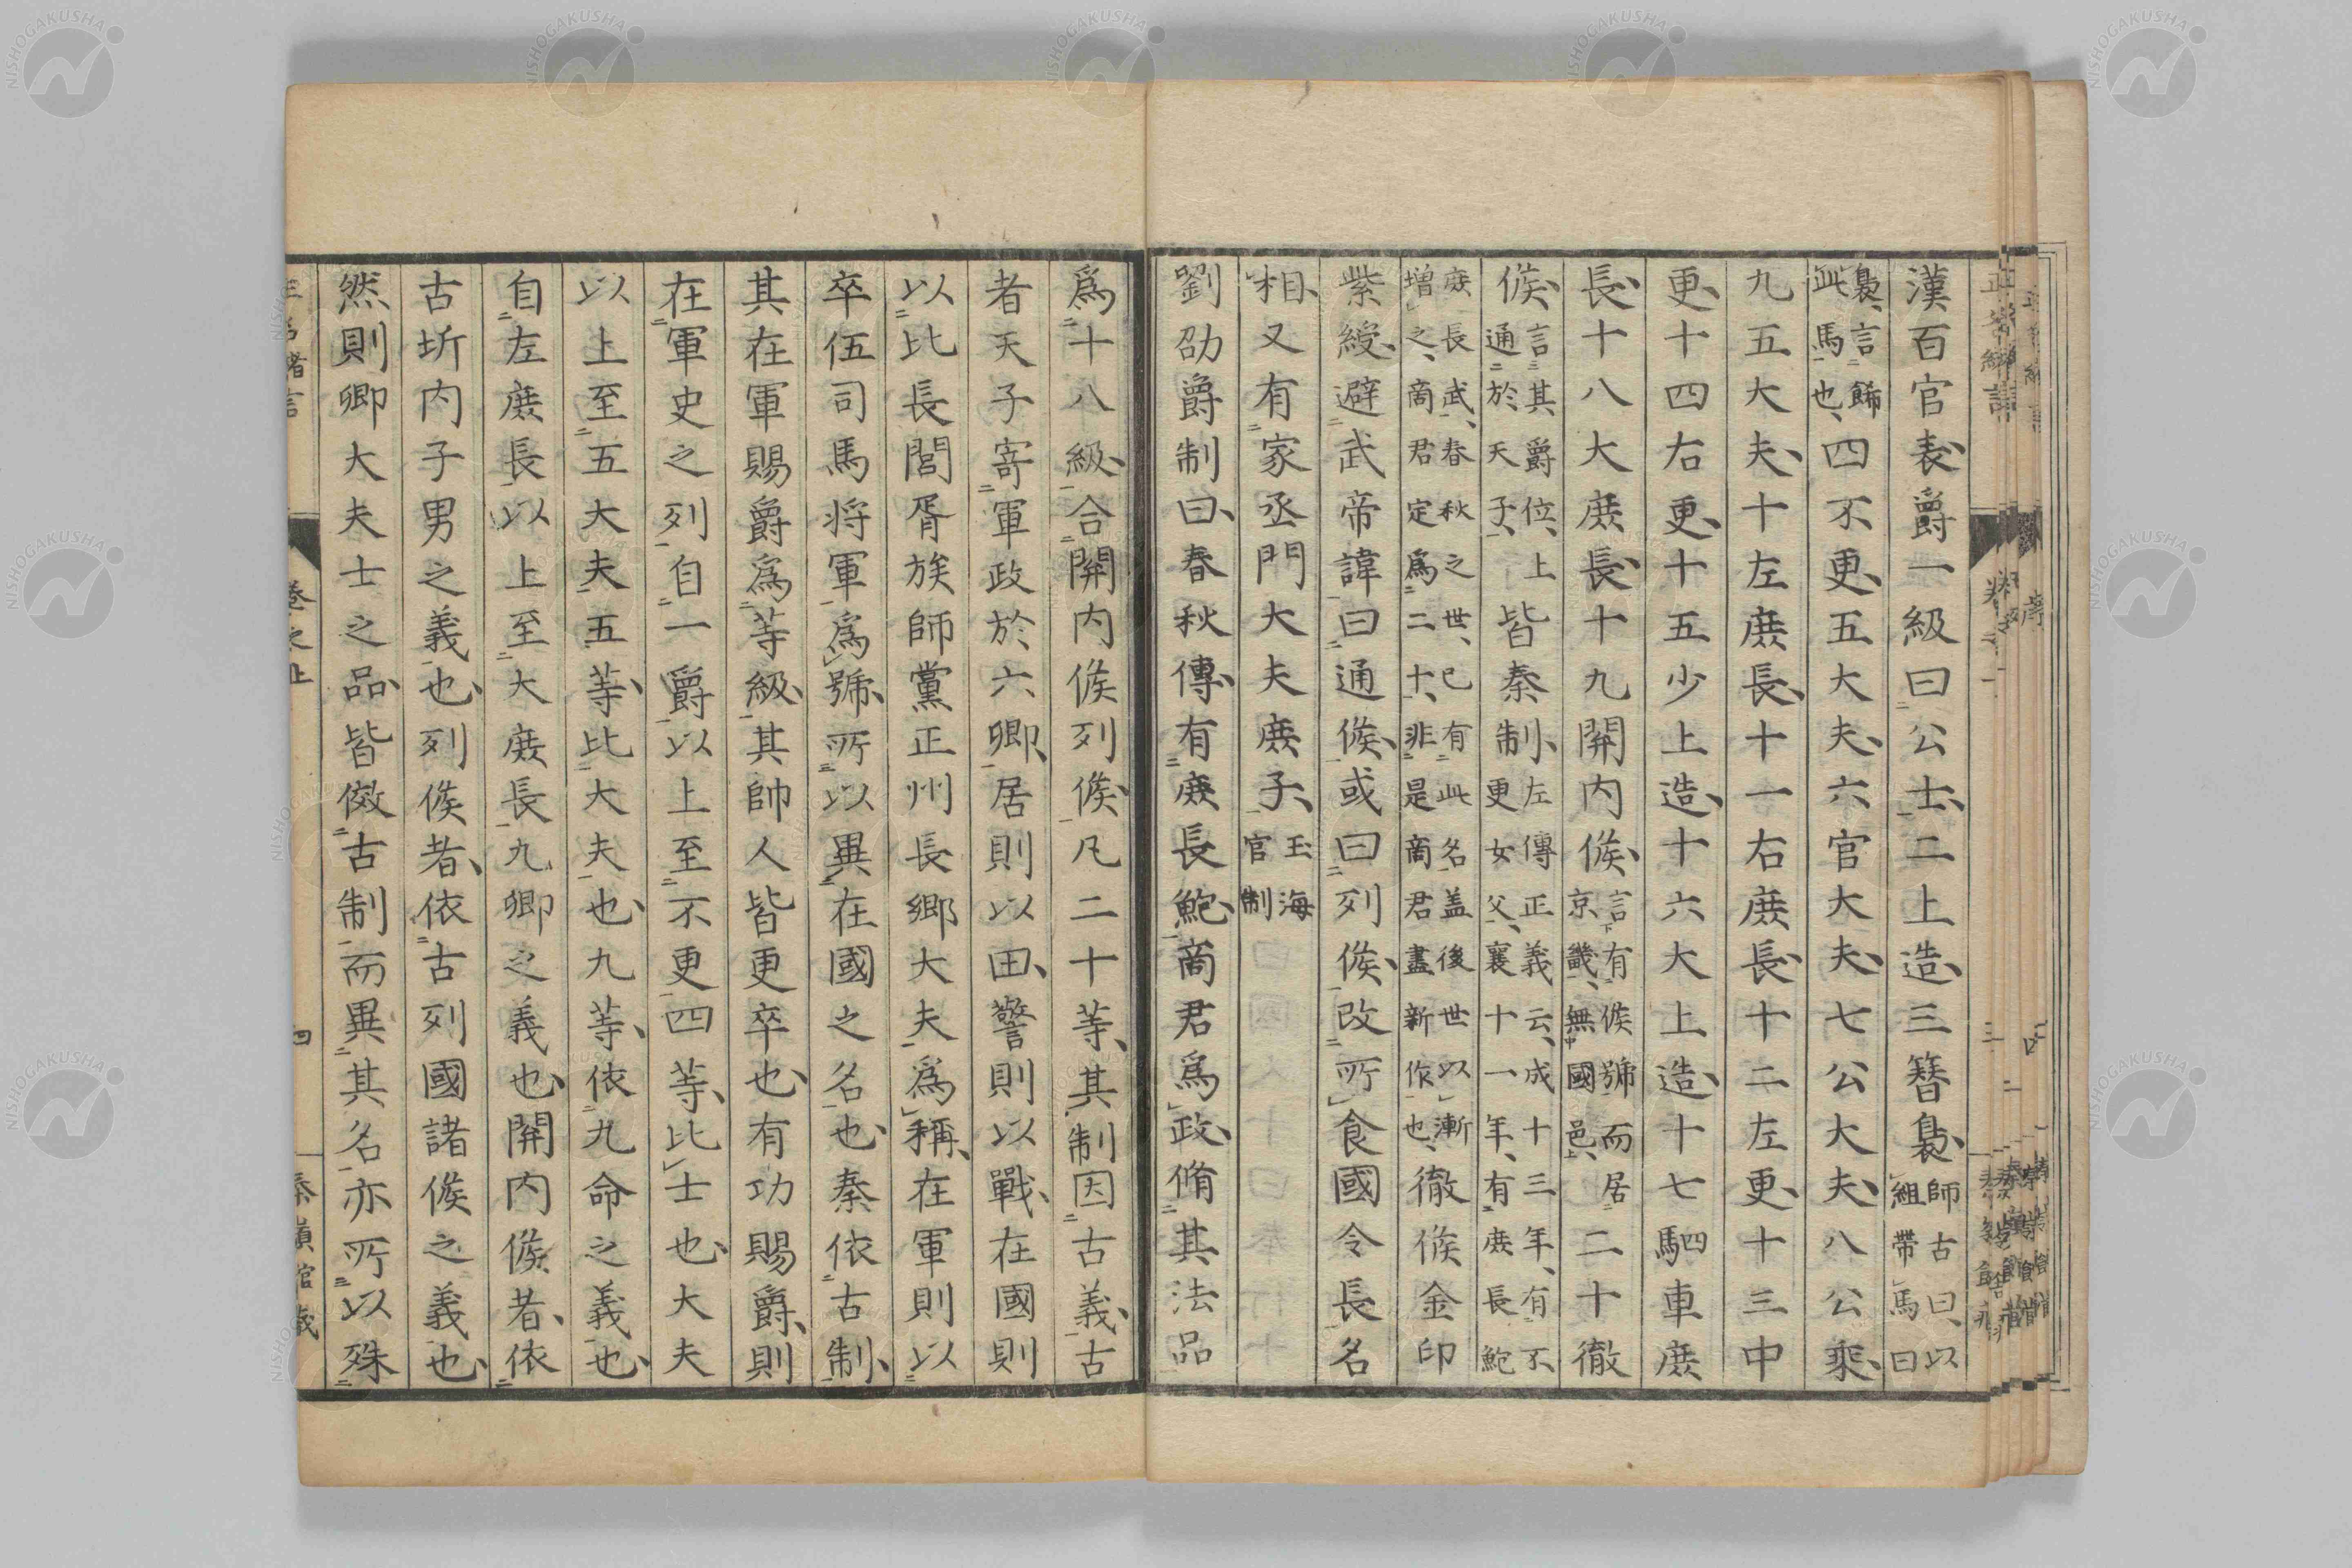 漢百官表爵一級曰公士二上造三簪裊師古曰以組帶馬曰
裊言飾此馬也四不更五大夫六官大夫七公大夫八公乘
九五大夫十左庶長十一右庶長十二左更十三中
更十四右更十五少上造十六大上造十七駟車庶
長十八大庶長十九關內侯言有侯號而居京畿無國邑二十徹
侯言其爵位上通於天子皆秦制左傳正義云成十三年有不更女父襄十一年有庶長鮑
庶長武春秋之世已有此名蓋後世以漸增之商君定爲二十非是商君盡新作也徹侯金印
紫綬避武帝諱曰通侯或曰列侯改所食國令長名
相又有家丞門大夫庶子玉海官制
劉劭爵制曰春秋傳有庶長鮑商君爲政脩其法品
爲十八級合關內侯列侯凡二十等其制因古義古
者天子寄軍政於六卿居則以田警則以戰在國則
以比長閭胥族師黨正州長鄉大夫爲稱在軍則以
卒伍司馬將軍爲號所以異在國之名也秦依古制
其在軍賜爵爲等級其帥人皆更卒也有功賜爵則
在軍吏之列自一爵以上至不更四等比士也大夫
以上至五大夫五等比大夫也九等依九命之義也
自左庶長以上至大庶長九卿之義也關內侯者依
古圻內子男之義也列侯者依古列國諸侯之義也
然則卿大夫士之品皆倣古制而異其名亦所以殊
卷之上
四